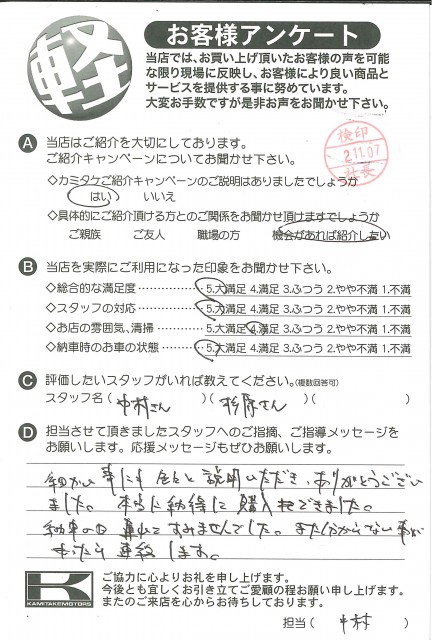 軽
お客様アンケート
当店では、お買い上げ頂いたお客様の声を可能
な限り現場に反映し、お客様により良い商品と
サービスを提供する事に努めています。
大変お手数ですが是非お声をお聞かせ下さい。
検印
2.11.07
社長
A 当店はご紹介を大切にしております。
ご紹介キャンペーンについてお聞かせ下さい。
◇カミタケご紹介キャンペーンのご説明はありましたでしょうか
はい いいえ
◇具体的にご紹介頂ける方とのご関係をお聞かせ頂けますでしょうか
ご親族 ご友人 職場の方 機会があれば紹介したい
B 当店を実際にご利用になった印象をお聞かせ下さい。
◇総合的な満足度…………5.大満足 4.満足 3.ふつう 2.やや不満 1.不満
◇スタッフの対応…………5.大満足 4.満足 3.ふつう 2.やや不満 1.不満
◇お店の雰囲気、清掃……5.大満足 4.満足 3.ふつう 2.やや不満 1.不満
◇納車時のお車の状態……5.大満足 4.満足 3.ふつう 2.やや不満 1.不満
C 評価したいスタッフがいれば教えてください。(複数回答可)
スタッフ名( 中村さん )( 杉原さん )( )
D 担当させて頂きましたスタッフへのご指摘、ご指導メッセージを
お願いします。応援メッセージもぜひお願いします。
細かい事にも 説明いただき、ありがとうござい
ました。本当に納得して購入できました。
納車の日 遅れてすみませんでした。また分からない事が
あったら連絡します。
K
KAMITAKEMOTORS
ご協力に心よりお礼を申し上げます。
今後とも宜しくお引き立てご愛顧の程お願い申し上げます。
またのご来店を心からお待ちしております。
担当( 中村 )